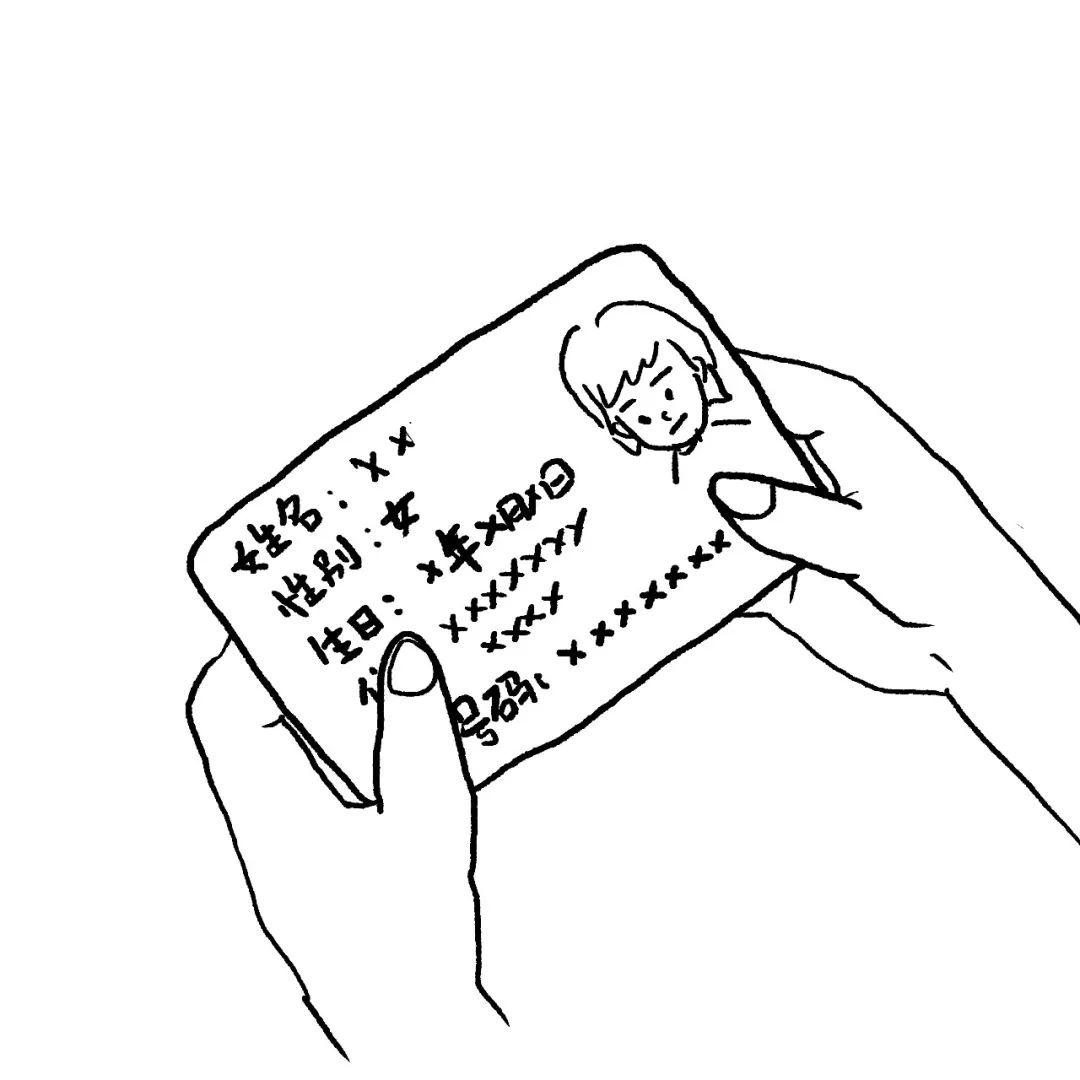 姓名：xx
性别：女
生日：x年x月x日
xxxxxxx
xxxx
号码：xxxxxxx